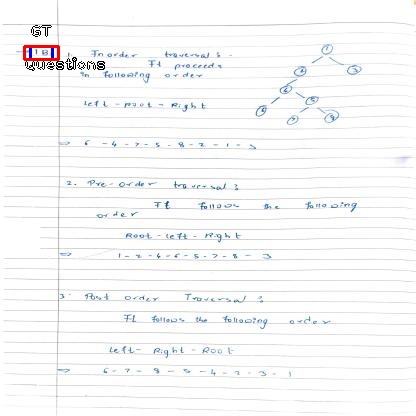 GT
1B
Questions
1. Inorder traversal :-
It proceeds
in following order
Left - Root - Right
⇒ 6 - 4 - 7 - 5 - 8 - 2 - 1 - 3
1
3
5
7
8
2. Pre-order traversal :
It follows the following
order
Root - Left - Right
⇒ 1 - 2 - 4 - 6 - 5 - 7 - 8 - 3
3. Post order Traversal :
It follows the following order
Left - Right - Root
⇒ 6 - 7 - 8 - 5 - 4 - 2 - 3 - 1